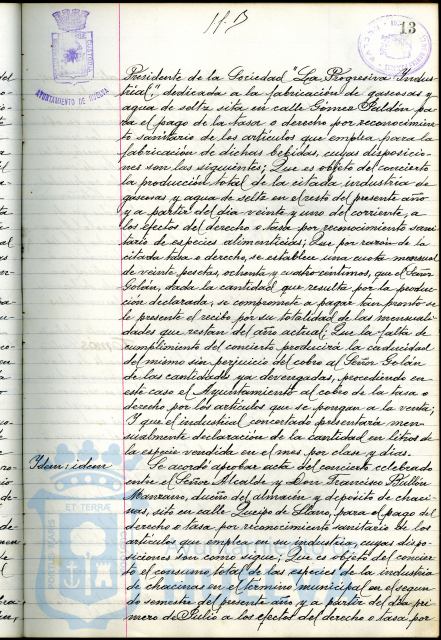 13
AYUNTAMIENTO DE HUELVA
Presidente de la Sociedad "La Progresiva Indus-
trial", dedicada a la fabricación de gaseosas y
agua de seltz sita en calle Gómez Jaldón pa-
ra el pago de la tasa o derecho por reconocimien-
to sanitario de los artículos que emplea para la
fabricación de dichas bebidas, cuyas disposicio-
nes son las siguientes; Que es objeto del concierto
la producción total de la citada industria de
gaseosas y agua de seltz en el resto del presente año
y a partir del día veinte y uno del corriente, a
los efectos del derecho o tasa por reconocimiento sani-
tario de especies alimenticias; Que por razón de la
citada tasa o derecho, se establece una cuota mensual
de veinte pesetas, ochenta y cuatro céntimos, que el Señor
Golán, dada la cantidad que resulta por la produc-
ción declarada, se compromete a pagar tan pronto se
le presente el recibo por su totalidad de las mensuali-
dades que restan del año actual; Que la falta de
cumplimiento del concierto producirá la caducidad
del mismo sin perjuicio del cobro al Señor Golán
de las cantidades ya devengadas, procediendo en
este caso el Ayuntamiento al cobro de la tasa o
derecho por los artículos que se pongan a la venta;
Y que el industrial concertado presentará men-
sualmente declaración de la cantidad en litros de
la especie vendida en el mes por clase y días.
Idem: idem
Se acordó aprobar acta del concierto celebrado
entre el Señor Alcalde y Don Francisco Pullón
Manzano, dueño del almacén y depósito de chaci-
nas, sito en calle Queipo de Llano, para el pago del
derecho o tasa por reconocimiento sanitario de los
artículos que emplea en su industria, cuyas dispo-
siciones son como sigue; Que es objeto del concier-
to el consumo total de las especies de la industria
de chacinas en el término municipal en el segun-
do semestre del presente año y a partir del día pri-
mero de Julio a los efectos del derecho o tasa por